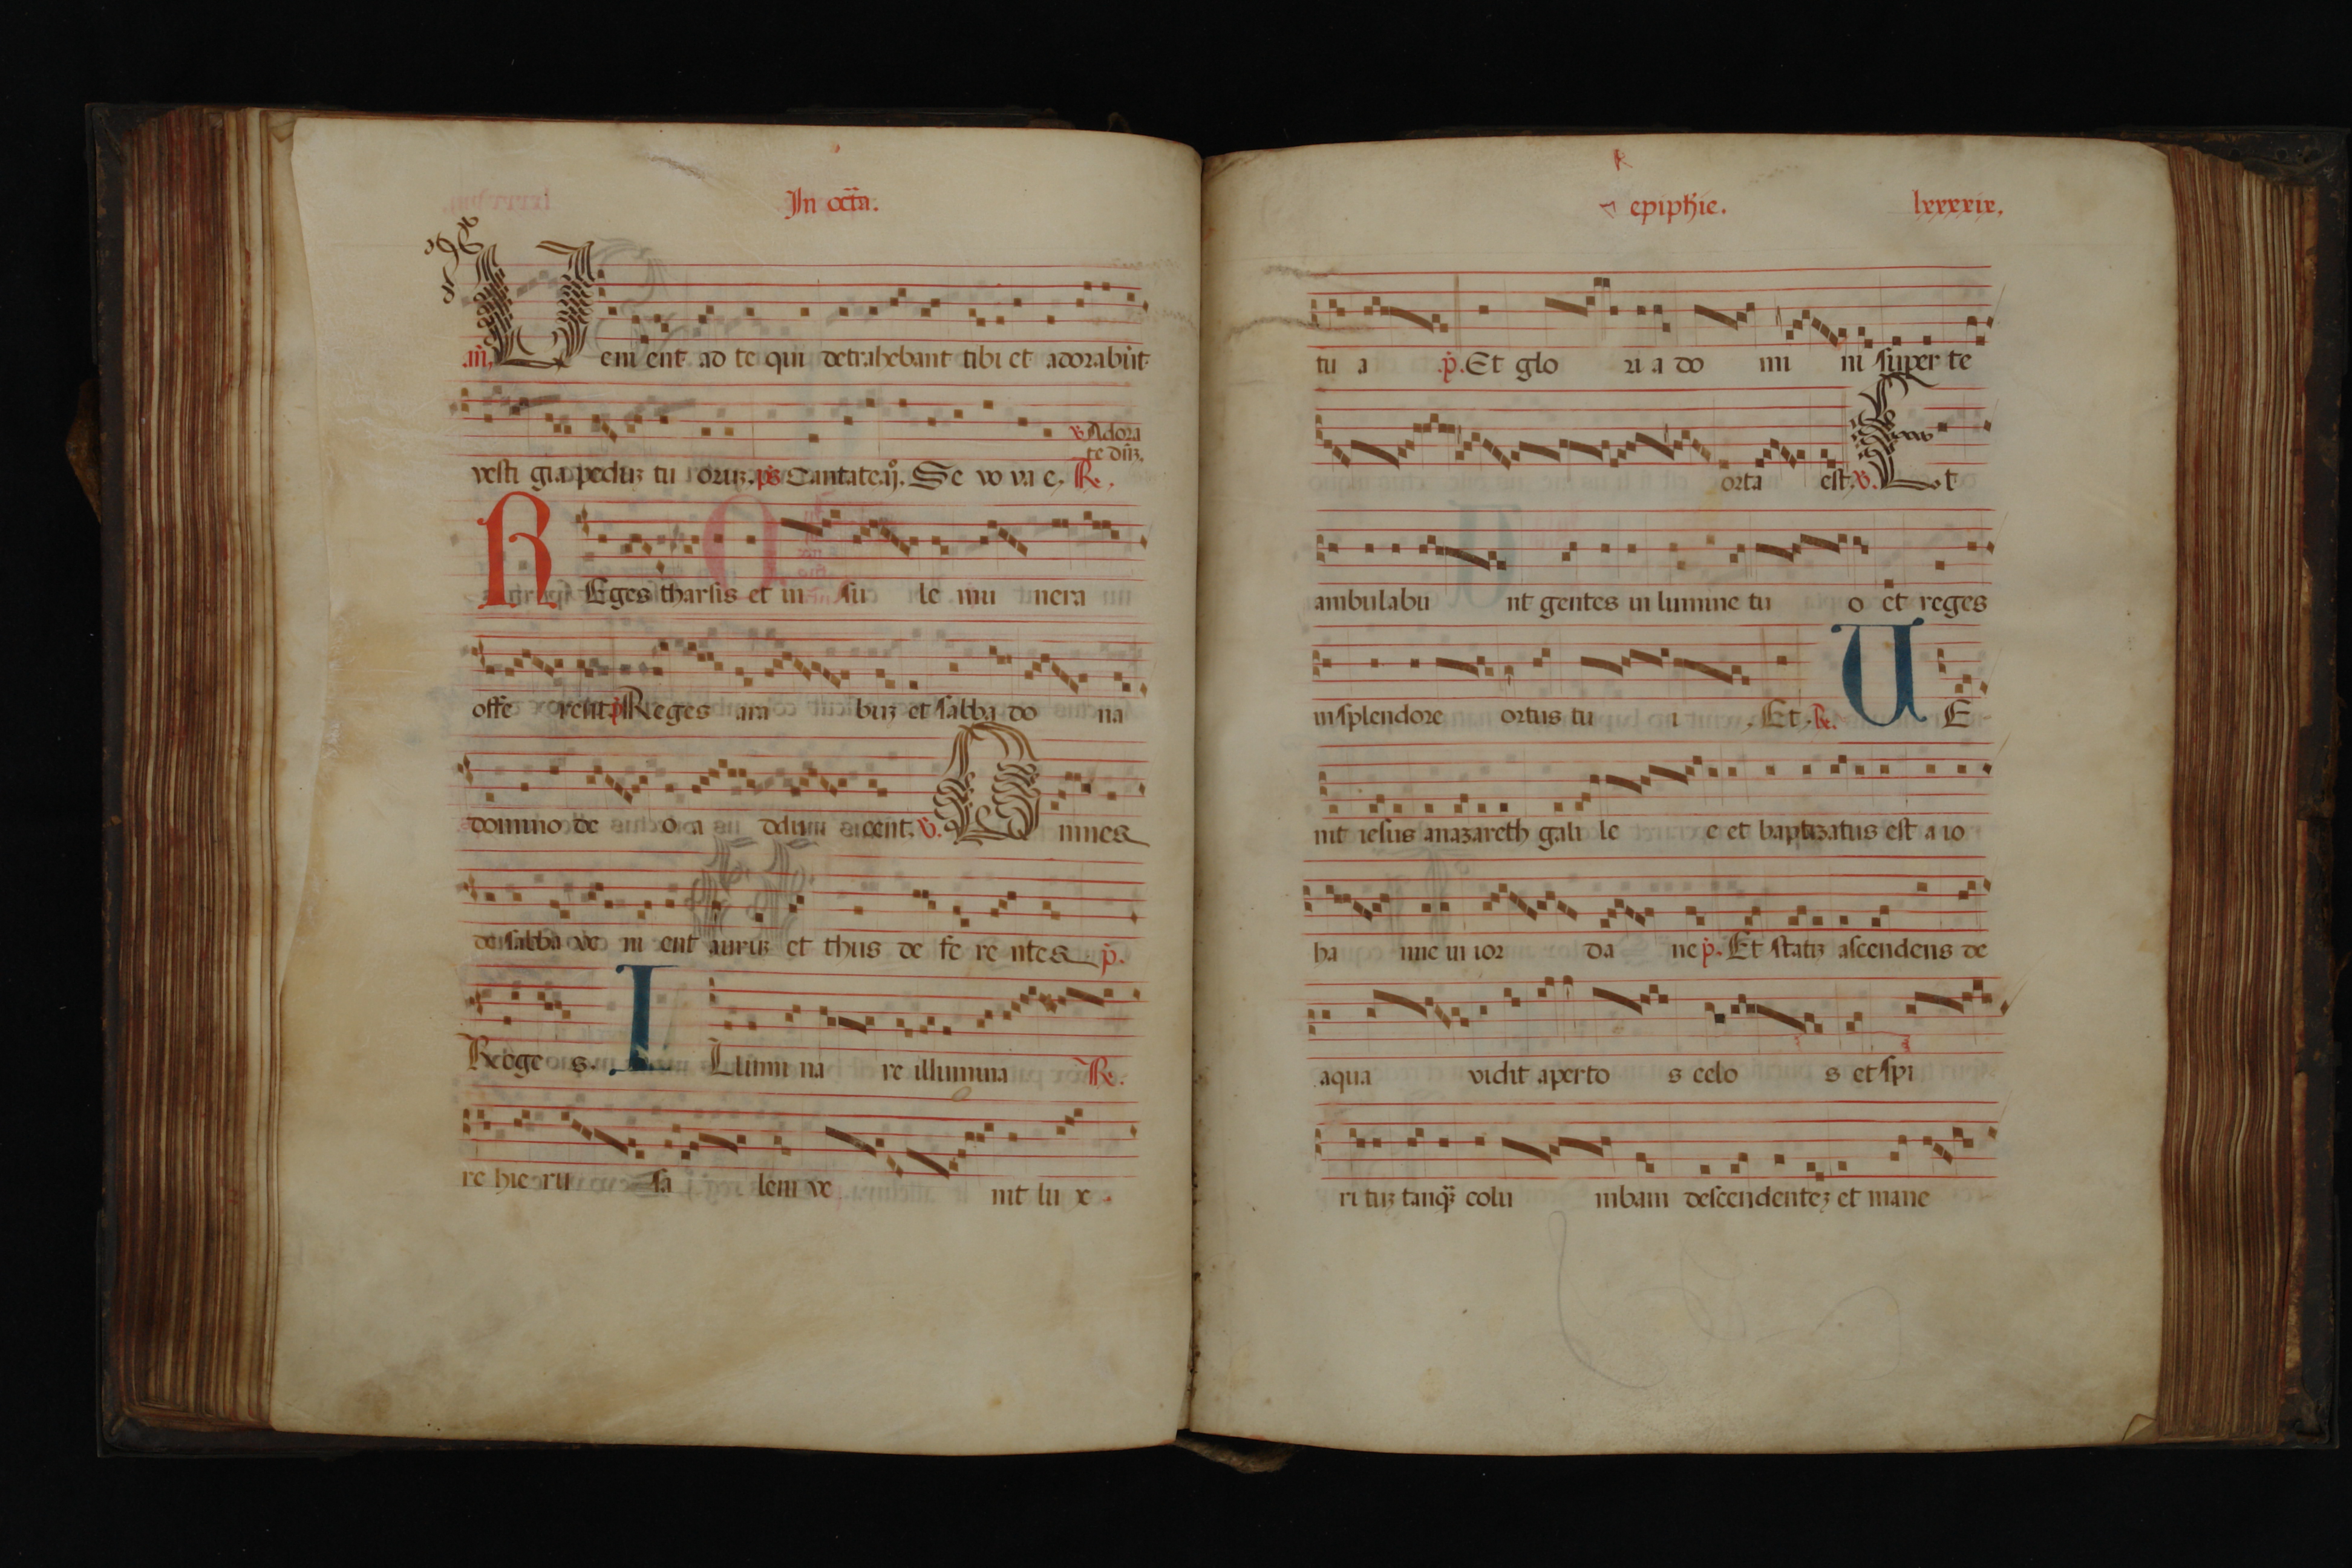 In oct̃a.
.añ. Ueni ent ad te qui detrahebant tibi et adorabũt
℣ Adora
te dñʒ.
vesti gia peduʒ tu oruʒ. p̃s Cantate.ij. Se vo va e. ℟.
REges tharsis et in su le mu nera
offe rent p̃ Reges ara buʒ et sabba do na
domino de o a ddu cent. ℣. Omnes
de sabba ve ni ent auruʒ et thus de fe re ntes p̃.
Rege s. ILlumi na re illumina ℟.
re hie ru sa lem ve nit lu x.
epiphie. lxxxxix.
tu a .p̃. Et glo ri a do mi ni super te
orta est. ℣. Et
ambulabu nt gentes in lumine tu o et reges
in splendore ortus tu i . Et. ℟. UE
nit iesus anazareth gali le e et baptizatus est a io
ha nne in ior da ne p̃. Et statiʒ ascendens de
aqua vidit aperto s celo s et spi
ri tuʒ tanqʒ̃ colu mbam descendenteʒ et mane